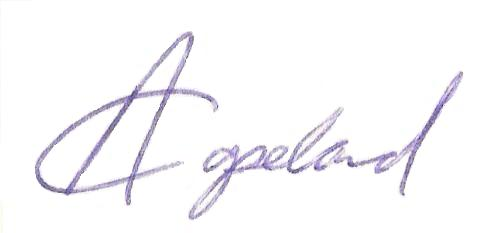 A Copeland